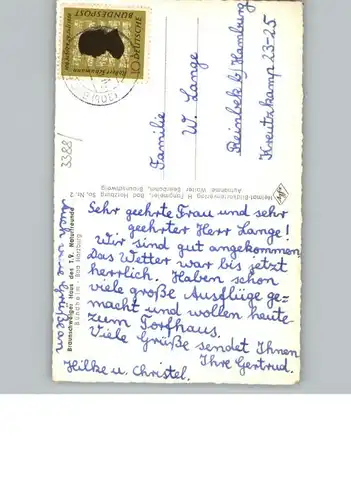 DEUTSCHE
BUNDESPOST
Robert Schumann
3388/
Familie
W. Lange
Reinbek b/ Hamburg
Kreutzkamp 23-25
Heimat-Bildkartenverlag H. Fangmeier, Bad Harzburg So. Nr. 2
Aufnahme: Walter Braunschweig
Sehr geehrte Frau und sehr
geehrter Herr Lange!
Wir sind gut angekommen.
Das Wetter war bis jetzt
herrlich. Haben schon
viele große Ausflüge ge-
macht und wollen heute
zum Torfhaus.
Viele Grüße sendet Ihnen
Ihre Gertrud.
Hilke u. Christel.
Braunschweiger Haus des T.V. Naturfreunde
Bündheim - Bad Harzburg
Auch viele Grüße an